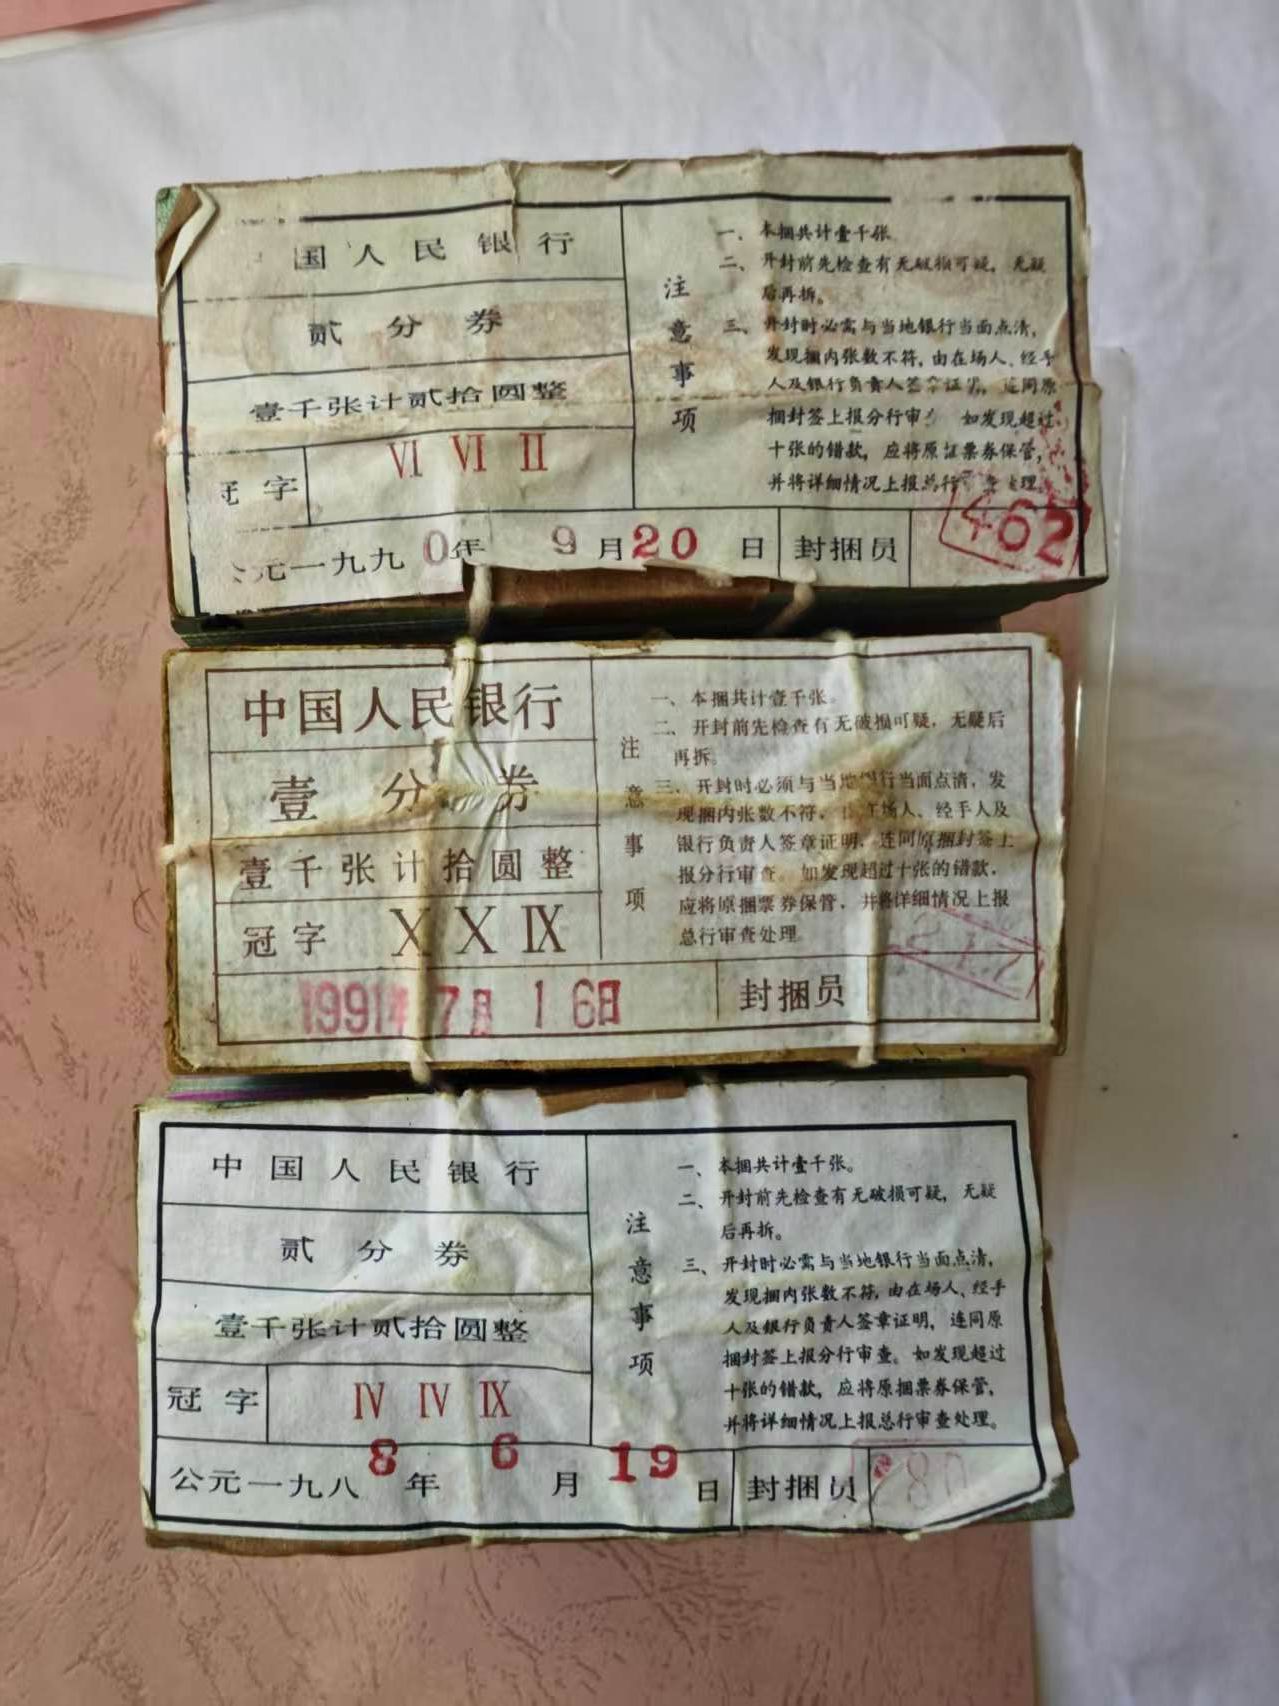 国人民银行
贰分券
壹千张计贰拾圆整
冠字 VI VI II
公元一九九0年 9月20日 封捆员 462
注意事项
一、本捆共计壹千张
二、开封前先检查有无破损可疑，无疑
后再拆。
三、开封时必需与当地银行当面点清，
发现捆内张数不符，由在场人、经手
人及银行负责人签章证明，连同原
捆封签上报分行审 如发现超过
十张的错款，应将原证票券保管，
并将详细情况上报总行审查处理。
中国人民银行
壹分券
壹千张计拾圆整
冠字 X X IX
1991年7月16日 封捆员
注意事项
一、本捆共计壹千张。
二、开封前先检查有无破损可疑，无疑后
再拆。
三、开封时必须与当地银行当面点清，发
现捆内张数不符， 在场人、经手人及
银行负责人签章证明，连同原捆封签上
报分行审查。如发现超过十张的错款，
应将原捆票券保管，并将详细情况上报
总行审查处理
中国人民银行
贰分券
壹千张计贰拾圆整
冠字 IV IV IX
公元一九八8年6月19日 封捆员
注意事项
一、本捆共计壹千张。
二、开封前先检查有无破损可疑，无疑
后再拆。
三、开封时必需与当地银行当面点清，
发现捆内张数不符，由在场人、经手
人及银行负责人签章证明，连同原
捆封签上报分行审查。如发现超过
十张的错款，应将原捆票券保管，
并将详细情况上报总行审查处理。